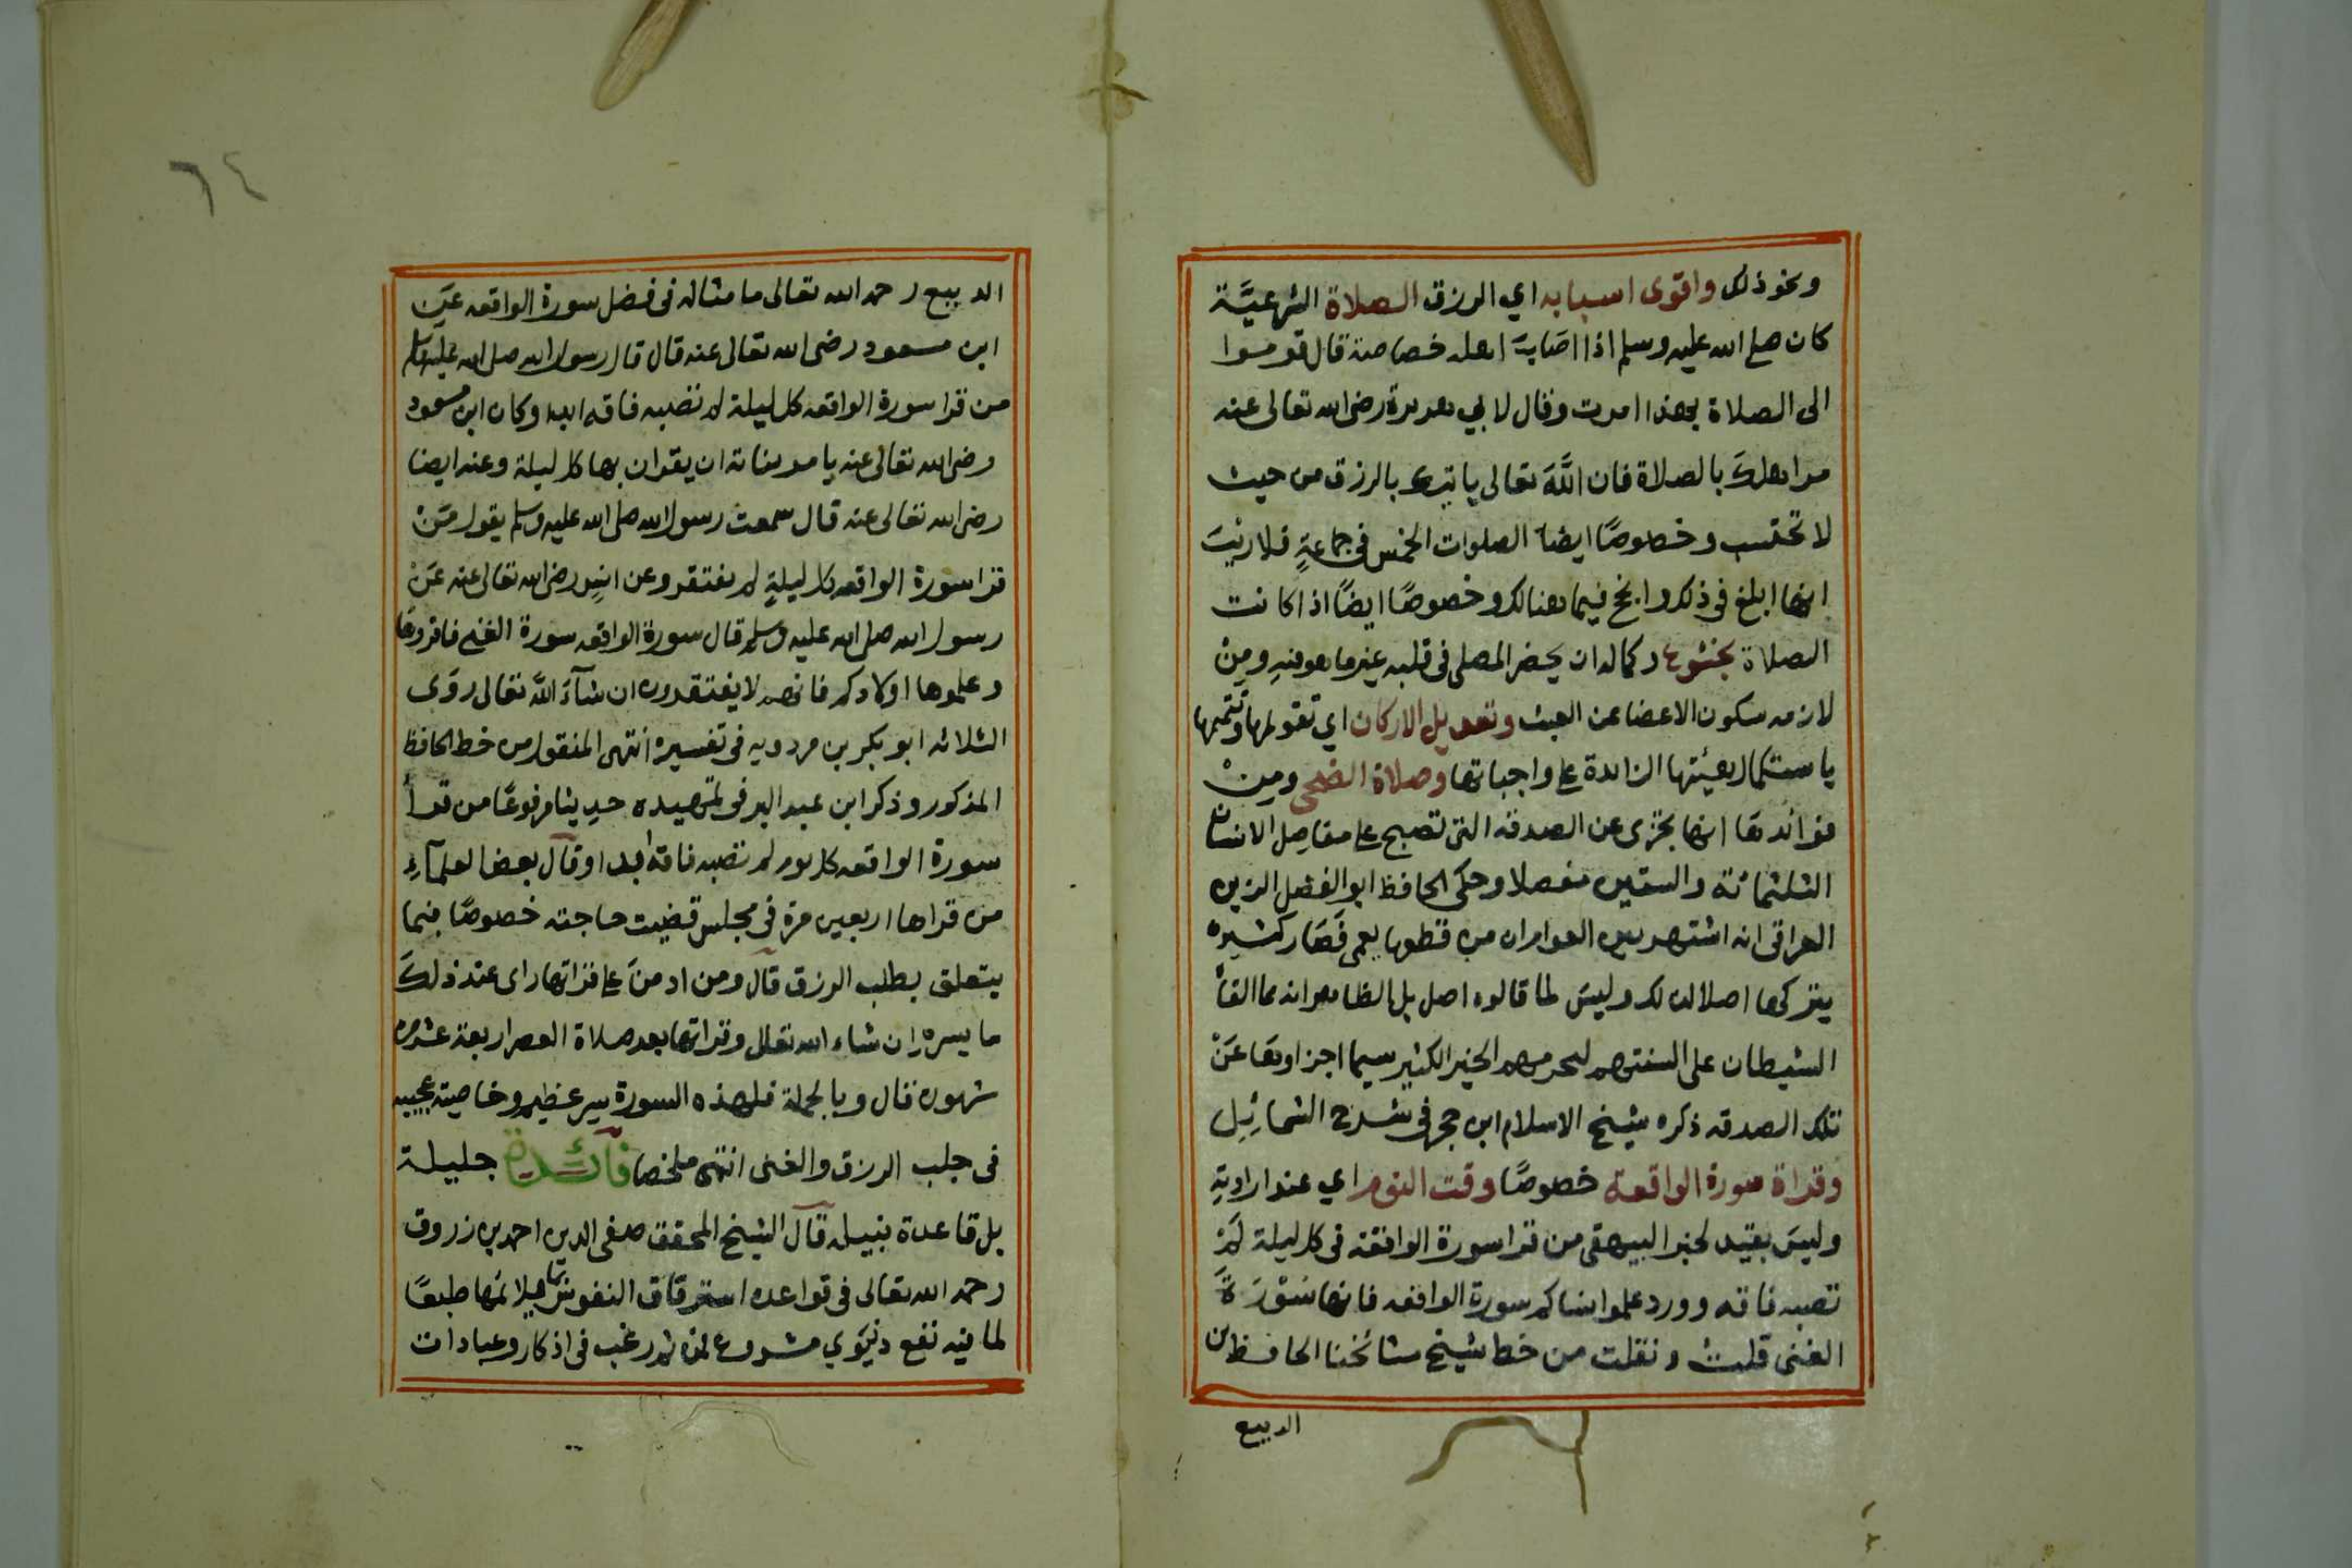 ونحو ذلك واقوى اسبابه اي الرزق الصلاة الشرعيَّة
كان صلى الله عليه وسلم اذا اصَابَ اهله خصاصة قال قوموا
الى الصلاة بهذا امرت وقال لابي هريرة رضى الله تعالى عنه
مر اهلكَ بالصلاة فان اللَّهَ تعالى ياتيك بالرزق من حيث
لا تحتسب وخصوصًا ايضًا الصلوات الخمس فى جماعةٍ فلا ريبَ
انها ابلغ فى ذلك وانجح فيما هنالك وخصوصًا ايضًا اذا كانت
الصلاة بخشوعها وكماله ان يحضر المصلى فى قلبه غير ما هو فيه ومِنْ
لازمه سكون الاعضا عن العبث وتعديل الاركان اي تقويمها وتتميمها
باستكمال هيئتها الزائدة على واجباتها وصلاة الضحى ومِنْ
فوائدها انها تجزى عن الصدقه التى تصبح على مفاصل الانسان
الثلثمائة والستين مفصلا وحكى الحافظ ابو الفضل الزين
العراقى انه اشتهر بين العوام ان من قطعها يعمى فَصَار كثيره
يتركها اصلا لذلك وليسَ لما قالوه اصل بل الظاهر انه مما القاهُ
الشيطان على السنتهم ليحرمهم الخير الكثير سيما اجزاوهَا عَنْ
تلك الصدقه ذكره شيخ الاسلام ابن حجر فى شرح الشمائِل
وقراة سورة الواقعة خصوصًا وقت النوم اي عند ارادتِهِ
وليسَ بقيد لخبر البيهقى من قرا سورة الواقعة فى كل ليلة لَمْ
تصبه فاقه وورد علموا نساكم سورة الواقعه فانها سُوْرَةُ
الغنى قلت ونقلت من خط شيخ مشائخنا الحافظ بن
الديبع
٦٤
الديبع رحمه الله تعالى ما مثاله فى فضل سورة الواقعه عَن
ابن مسعود رضى الله تعالى عنه قال قال رسول الله صلى الله عليه وسلم
من قرا سورة الواقعه كل ليلة لم تصبه فاقه ابدا وكان ابن مسعود
رضى الله تعالى عنه يامر بناته ان يقران بها كل ليلة وعنه ايضا
رضى الله تعالى عنه قال سمعت رسول الله صلى الله عليه وسلم يقول مَنْ
قرا سورة الواقعه كل ليلةٍ لم يفتقر وعن انسٍ رضى الله تعالى عنه عَنْ
رسول الله صلى الله عليه وسلم قال سورة الواقعه سورة الغنى فاقروها
وعلموها اولادكم فانهم لا يفتقرون ان شآءَ اللَّه تعالى روَى
الثلاثه ابو بكر بن مردويه فى تفسيره انتهى المنقول من خط الحافظ
المذكور وذكر ابن عبد البر فى تمهيده حديثا مرفوعًا من قرأ
سورة الواقعه كل يوم لم تصبه فاقه ابدا وقال بعض العلمآءِ
من قراها اربعين مرة فى مجلس قضيت حاجته خصوصًا فيما
يتعلق بطلب الرزق قال ومن ادمنَ على قراتها راى عند ذلكَ
ما يسره ان شاء الله تعالى وقراتها بعد صلاة العصر اربعة عشر مره
مشهوره قال وبالجملة فلهذه السورة سر عظيم وخاصية عجيبه
فى جلب الرزق والغنى انتهى ملخصا فآئدة جليلة
بل قاعدة نبيله قال الشيخ المحقق صفى الدين احمد بن زروق
رحمه الله تعالى فى قواعده استرقاق النفوس بما يلائمها طبعًا
لما فيه نفع دنيَوي مشروع لمن ثم رغب فى اذكار وعبادات